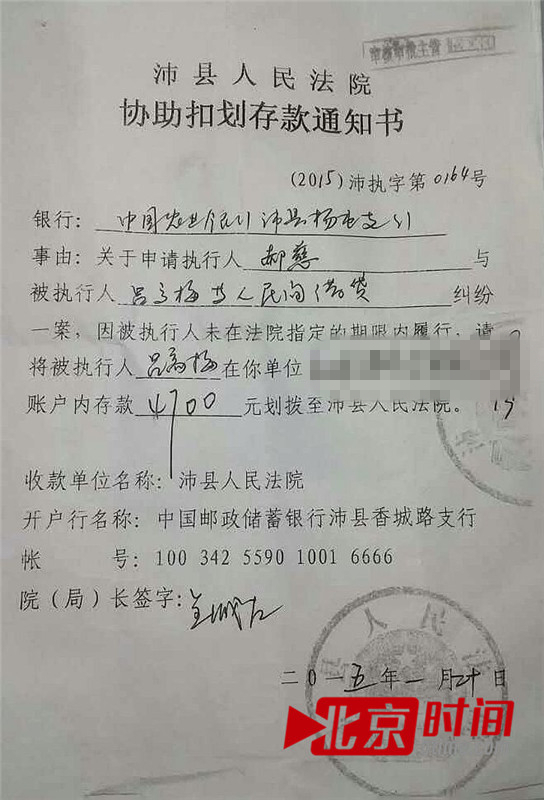 沛县人民法院
协助扣划存款通知书
(2015)沛执字第0164号
银行：中国农业银行沛县杨屯支行
事由：关于申请执行人郝慈与
被执行人吕高梅等人民间借贷纠纷
一案，因被执行人未在法院指定的期限内履行，请
将被执行人吕高梅在你单位
账户内存款4700元划拨至沛县人民法院。
收款单位名称：沛县人民法院
开户行名称：中国邮政储蓄银行沛县香城路支行
帐号：100 342 5590 1001 6666
院（局）长签字：
二〇一五年一月二十日
县人民法
北京时间